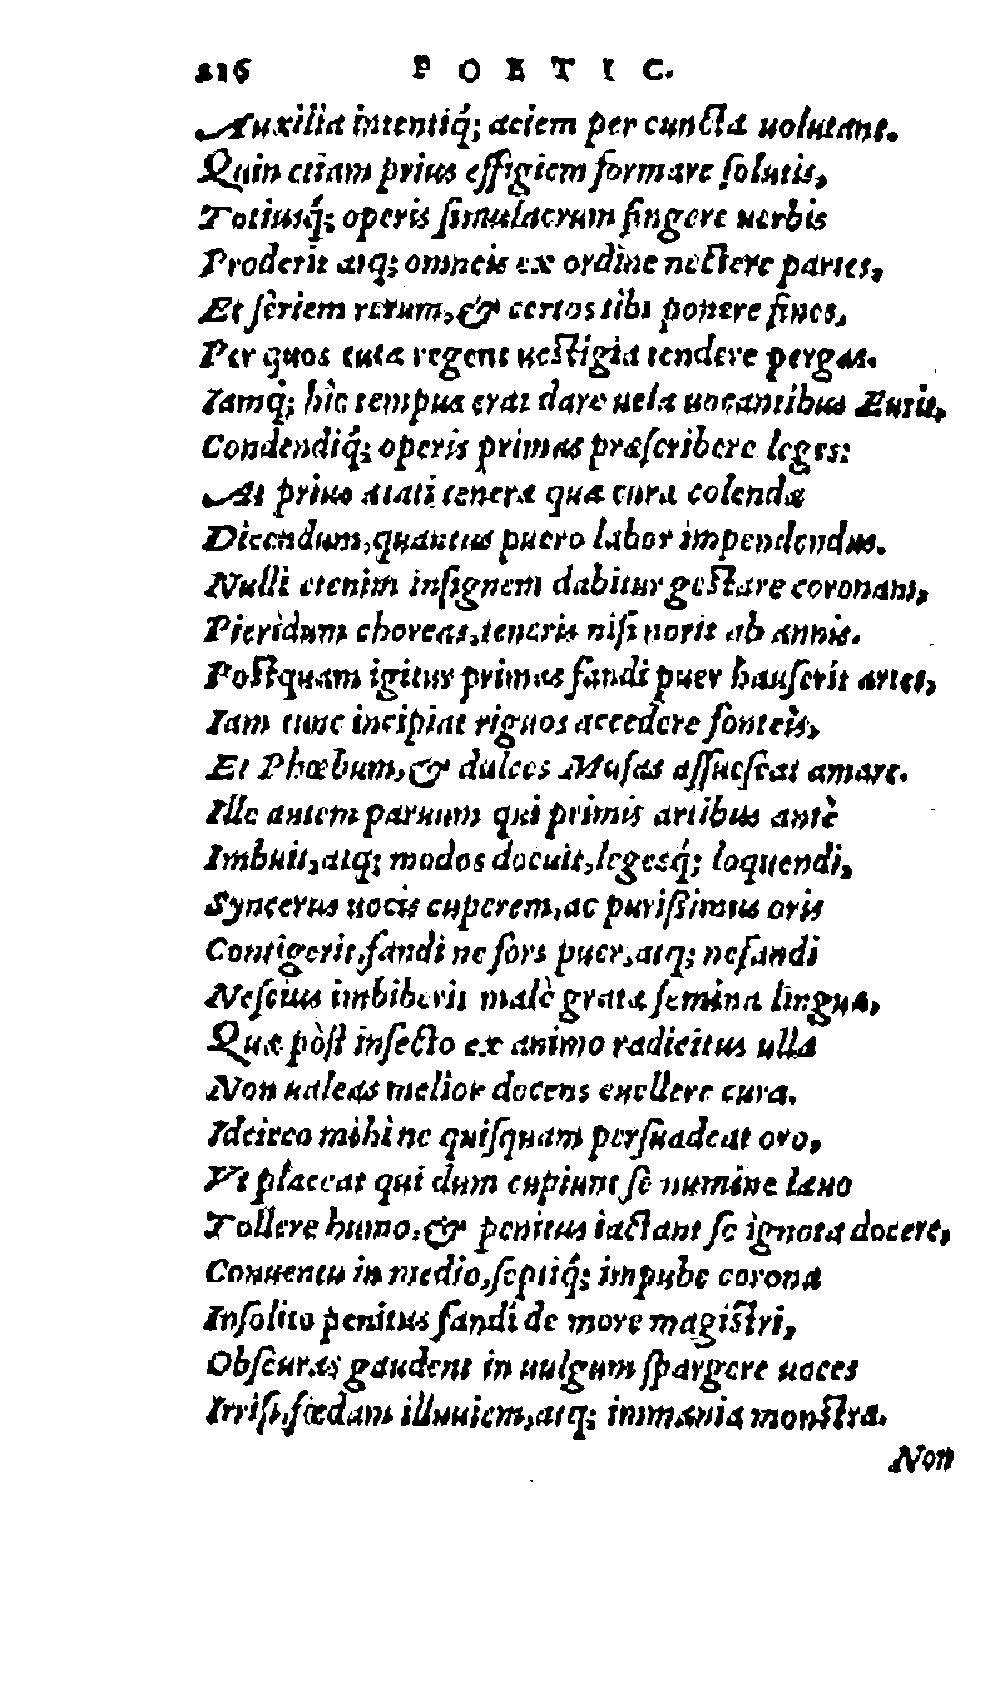 216 POETIC.
Auxilia intentiq́; aciem per cuncta uolutant.
Quin etiam prius effigiem formare ſolutis,
Totiusq́; operis ſimulacrum fingere uerbis
Proderit atq; omneis ex ordine nectere partes,
Et ſeriem rerum, & certos tibi ponere fines,
Per quos tuta regens ueſtigia tendere pergas.
Iamq́; hìc tempus erat dare uela uocantibus Euris,
Condendiq́; operis primas præſcribere leges:
At prius ætati teneræ quæ cura colendæ
Dicendum, quantus puero labor impendendus.
Nulli etenim inſignem dabitur geſtare coronam,
Pieridum choreas, teneris niſi norit ab annis.
Poſtquam igitur primas fandi puer hauſerit artes,
Iam tunc incipiat riguos accedere fonteis,
Et Phœbum, & dulces Muſas aſſueſcat amare.
Ille autem paruum qui primis artibus antè
Imbuit, atq; modos docuit, legesq́; loquendi,
Syncerus uocis cuperem, ac puriſſimus oris
Contigerit, fandi ne fors puer, atq; nefandi
Neſcius imbiberit malè gratæ ſemina linguæ,
Quæ pòſt infecto ex animo radicitus ulla
Non ualeas melior docens euellere cura.
Idcirco mihi ne quiſquam perſuadeat oro,
Vt placeat qui dum cupiunt ſe numine læuo
Tollere humo, & penitus iactant ſe ignota docere,
Conuentu in medio, ſeptiq́; impube corona
Inſolito penitus fandi de more magiſtri,
Obſcuras gaudent in uulgum ſpargere uoces
Irriſi, fœdam illuuiem, atq; immania monſtra.
Non